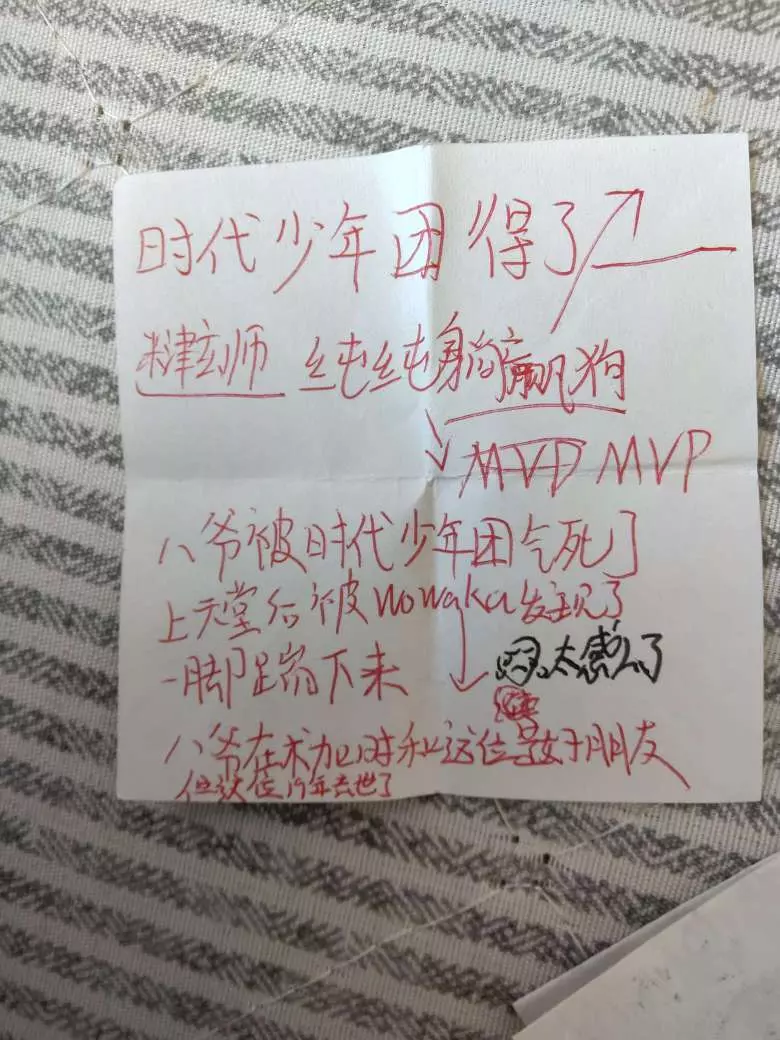 时代少年团得了
米津玄师 纯纯躺赢狗
MVP MVP
八爷被时代少年团气死了
上天堂后被wowaka发现了
一脚踹下来
太感人了
八爷在术力口时和这位是好朋友
但这位19年去世了